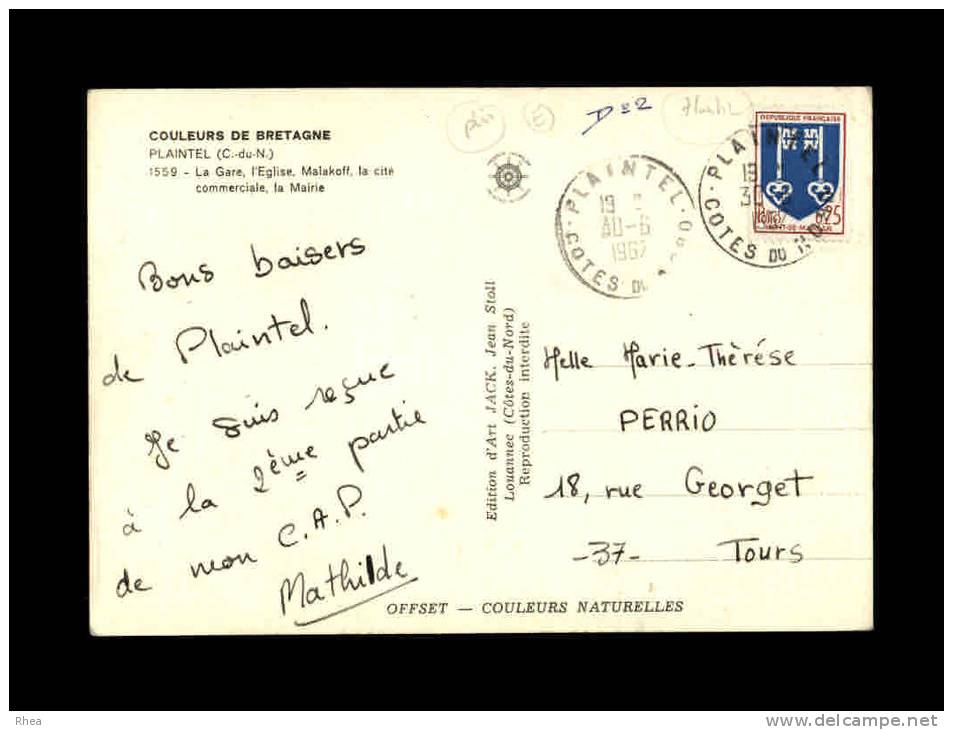 COULEURS DE BRETAGNE
PLAINTEL (C.-du-N.)
1559 - La Gare, l'Eglise, Malakoff, la cité
commerciale, la Mairie
Bons baisers
de Plaintel.
Je suis reçue
à la 2ème partie
de mon C.A.P.
Mathilde
Edition d'Art JACK, Jean Stoll
Louannec (Côtes-du-Nord)
Reproduction interdite
OFFSET — COULEURS NATURELLES
PLAINTEL
30-6
1967
COTES DU
REPUBLIQUE FRANÇAISE
0,25
MONT-DE-MARSAN
PLAINTEL
COTES DU NORD
Melle Marie-Thérèse
PERRIO
18, rue Georget
-37- Tours
Rhea
www.delcampe.net